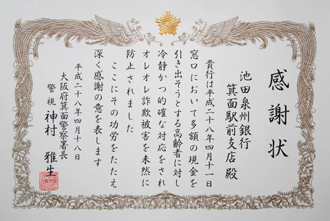 感謝状
池田泉州銀行
箕面駅前支店 殿
貴行は平成二十八年四月十一日
窓口において多額の現金を
引き出そうとする高齢者に対し
冷静かつ的確な対応をされ
オレオレ詐欺被害を未然に
防止されました
ここにその功労をたたえ
深く感謝の意を表します
平成二十八年四月十八日
大阪府箕面警察署長
警視 神村 雅生